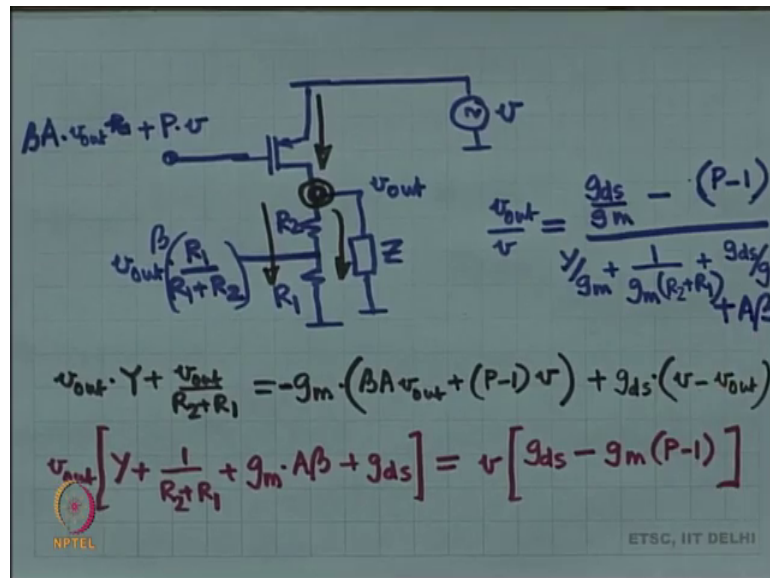 βA·v_out + P·v
v
v_out
R2
β
v_out(R1/(R1+R2))
R1
Z
v_out/v = (gds/gm - (P-1)) / (Y/gm + 1/(gm(R2+R1)) + gds/g + Aβ)
v_out·Y + v_out/(R2+R1) = -gm·(βA v_out + (P-1) v) + gds·(v - v_out)
v_out[Y + 1/(R2+R1) + gm·Aβ + gds] = v[gds - gm(P-1)]
NPTEL
ETSC, IIT DELHI